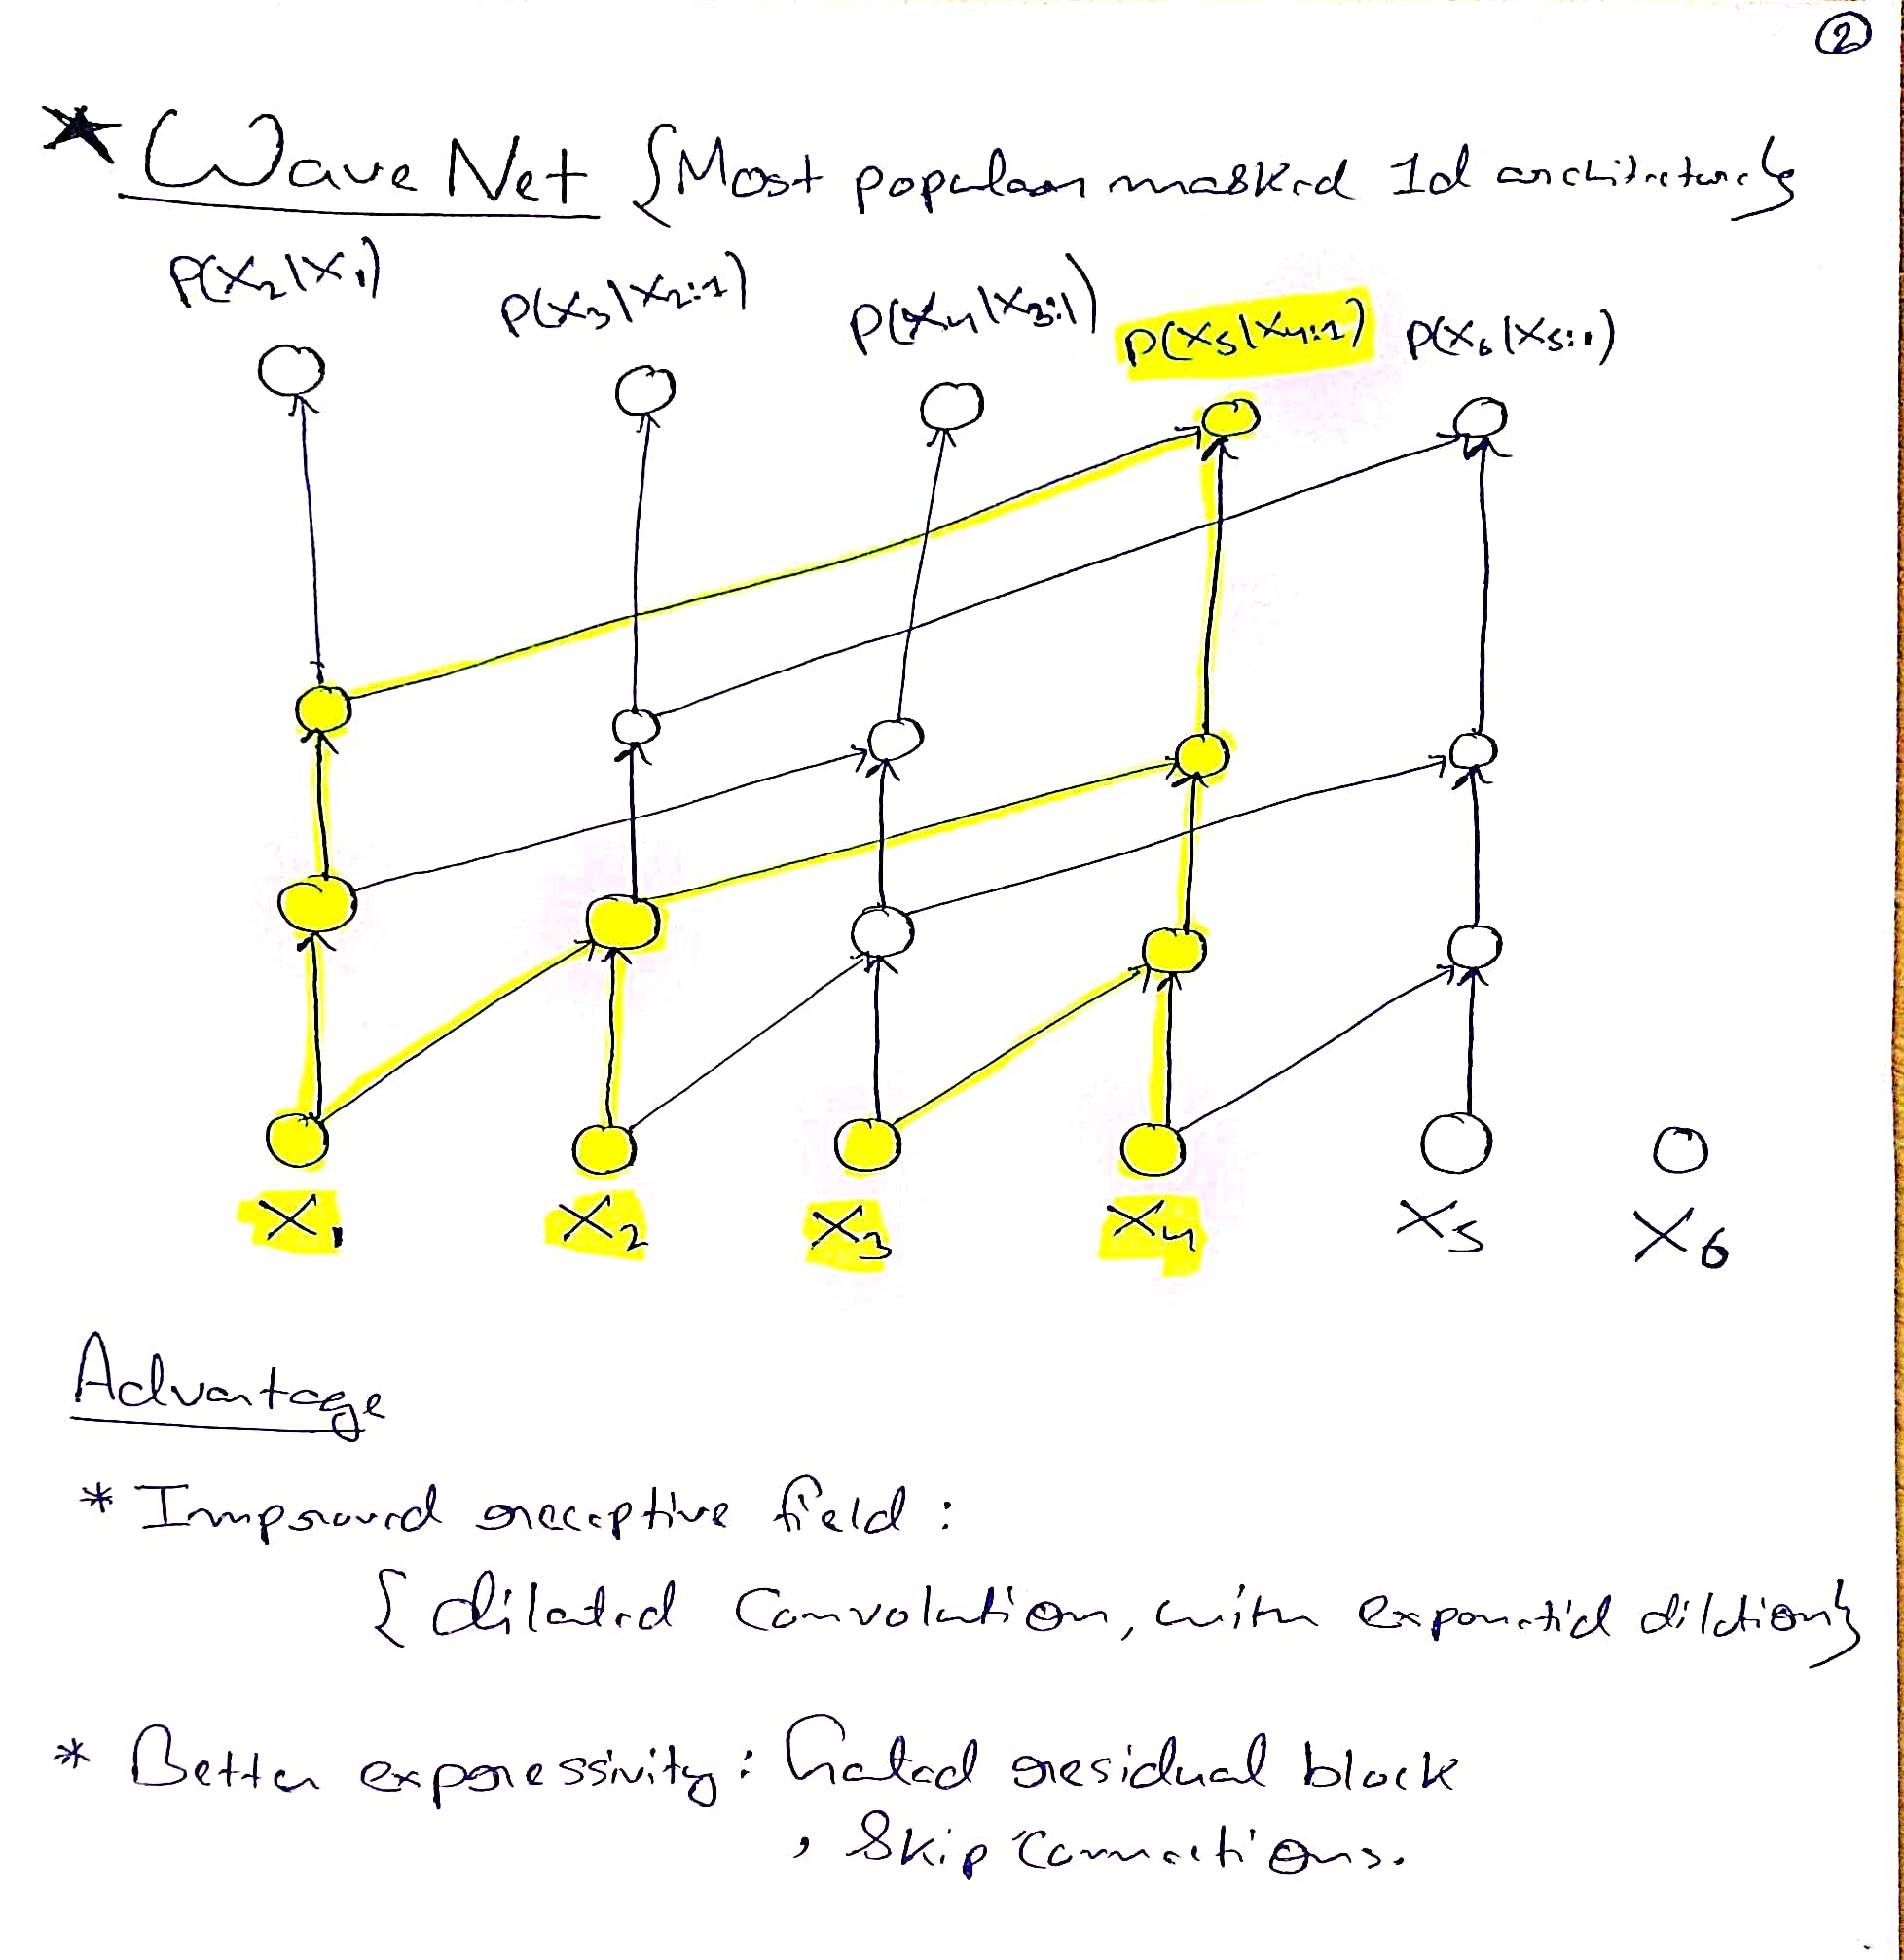 ②
* Wave Net {Most popular masked 1d architecture}
P(X₂|X₁) P(X₃|X₂:₁) P(X₄|X₃:₁) P(X₅|X₄:₁) P(X₆|X₅:₁)
X₁ X₂ X₃ X₄ X₅ X₆
Advantage
* Improved receptive field :
{ dilated Convolution, with exponential dilation}
* Better expressivity : Gated residual block
, Skip Connections.